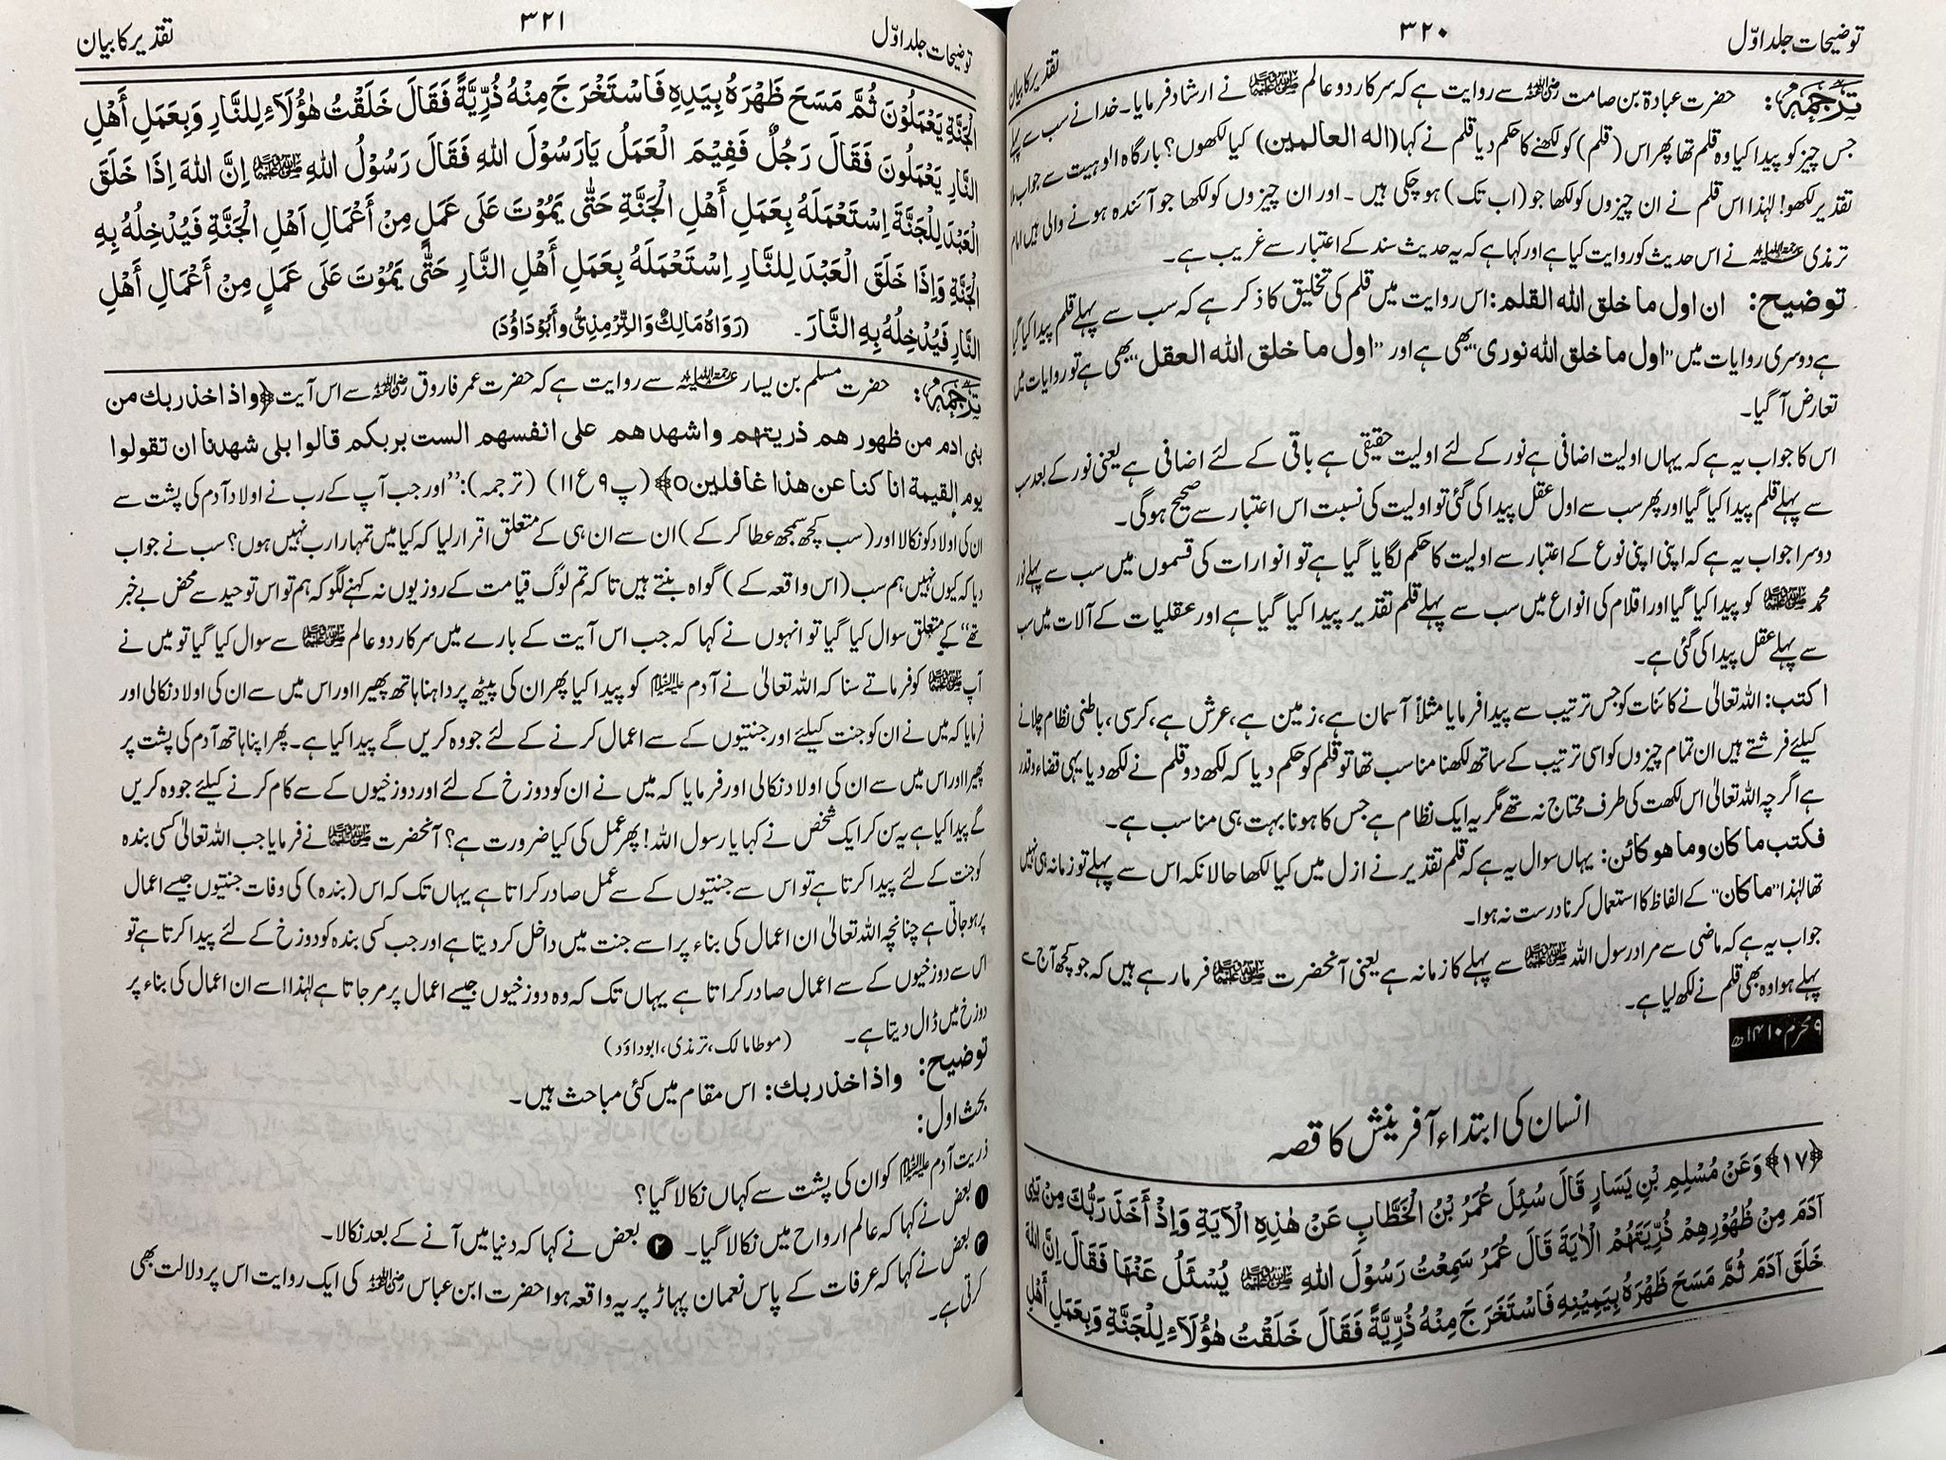 توضیحات جلد اوّل
۳۲۰
تقدیر کا بیان
ترجمہ: حضرت عبادۃ بن صامت رضی اللہ عنہ سے روایت ہے کہ سرکار دو عالم ﷺ نے ارشاد فرمایا۔ خدا نے سب سے پہلے
جس چیز کو پیدا کیا وہ قلم تھا پھر اس (قلم) کو لکھنے کا حکم دیا قلم نے کہا (الہ العالمین) کیا لکھوں؟ بارگاہ الوہیت سے جواب
تقدیر لکھو! لہٰذا اس قلم نے ان چیزوں کو لکھا جو (اب تک) ہو چکی ہیں۔ اور ان چیزوں کو لکھا جو آئندہ ہونے والی ہیں امام
ترمذی رحمۃ اللہ علیہ نے اس حدیث کو روایت کیا ہے اور کہا ہے کہ یہ حدیث سند کے اعتبار سے غریب ہے۔
توضیح: ان اول ما خلق الله القلم: اس روایت میں قلم کی تخلیق کا ذکر ہے کہ سب سے پہلے قلم پیدا کیا گیا
ہے دوسری روایات میں "اول ما خلق الله نوری" بھی ہے اور "اول ما خلق الله العقل" بھی ہے تو روایات میں
تعارض آ گیا۔
اس کا جواب یہ ہے کہ یہاں اولیت اضافی ہے نور کے لئے اولیت حقیقی ہے باقی کے لئے اضافی ہے یعنی نور کے بعد سب
سے پہلے قلم پیدا کیا گیا اور پھر سب سے اول عقل پیدا کی گئی تو اولیت کی نسبت اس اعتبار سے صحیح ہوگی۔
دوسرا جواب یہ ہے کہ اپنی اپنی نوع کے اعتبار سے اولیت کا حکم لگایا گیا ہے تو انوارات کی قسموں میں سب سے پہلے نور
محمد ﷺ کو پیدا کیا گیا اور اقلام کی انواع میں سب سے پہلے قلم تقدیر پیدا کیا گیا ہے اور عقلیات کے آلات میں سب
سے پہلے عقل پیدا کی گئی ہے۔
اکتب: اللہ تعالیٰ نے کائنات کو جس ترتیب سے پیدا فرمایا مثلاً آسمان ہے، زمین ہے، عرش ہے، کرسی، باطنی نظام چلانے
کیلئے فرشتے ہیں ان تمام چیزوں کو اسی ترتیب کے ساتھ لکھنا مناسب تھا تو قلم کو حکم دیا کہ لکھ دو قلم نے لکھ دیا یہی قضاء وقدر
ہے اگرچہ اللہ تعالیٰ اس لکھت کی طرف محتاج نہ تھے مگر یہ ایک نظام ہے جس کا ہونا بہت ہی مناسب ہے۔
فکتب ما کان وما هو کائن: یہاں سوال یہ ہے کہ قلم تقدیر نے ازل میں کیا لکھا حالانکہ اس سے پہلے تو زمانہ ہی نہیں
تھا لہٰذا "ما کان" کے الفاظ کا استعمال کرنا درست نہ ہوا۔
جواب یہ ہے کہ ماضی سے مراد رسول اللہ ﷺ سے پہلے کا زمانہ ہے یعنی آنحضرت ﷺ فرما رہے ہیں کہ جو کچھ آج سے
پہلے ہوا وہ بھی قلم نے لکھ لیا ہے۔
۹ محرم ۱۴۱۰ھ
انسان کی ابتداء آفرینش کا قصہ
﴿۱۷﴾ وَعَنْ مُسْلِمِ بْنِ يَسَارٍ قَالَ سُئِلَ عُمَرُ بْنُ الْخَطَّابِ عَنْ هٰذِهِ الْآيَةِ وَإِذْ أَخَذَ رَبُّكَ مِنْ بَنِي
آدَمَ مِنْ ظُهُوْرِهِمْ ذُرِّيَّتَهُمْ الْآيَةَ قَالَ عُمَرُ سَمِعْتُ رَسُوْلَ اللهِ ﷺ يُسْئَلُ عَنْهَا فَقَالَ إِنَّ اللهَ
خَلَقَ آدَمَ ثُمَّ مَسَحَ ظَهْرَهُ بِيَمِيْنِهِ فَاسْتَخْرَجَ مِنْهُ ذُرِّيَّةً فَقَالَ خَلَقْتُ هٰؤُلَاءِ لِلْجَنَّةِ وَبِعَمَلِ أَهْلِ
توضیحات جلد اوّل
۳۲۱
تقدیر کا بیان
الْجَنَّةِ يَعْمَلُوْنَ ثُمَّ مَسَحَ ظَهْرَهُ بِيَدِهِ فَاسْتَخْرَجَ مِنْهُ ذُرِّيَّةً فَقَالَ خَلَقْتُ هٰؤُلَاءِ لِلنَّارِ وَبِعَمَلِ أَهْلِ
النَّارِ يَعْمَلُوْنَ فَقَالَ رَجُلٌ فَفِيْمَ الْعَمَلُ يَارَسُوْلَ اللهِ فَقَالَ رَسُوْلُ اللهِ ﷺ إِنَّ اللهَ إِذَا خَلَقَ
الْعَبْدَ لِلْجَنَّةِ اِسْتَعْمَلَهُ بِعَمَلِ أَهْلِ الْجَنَّةِ حَتّٰى يَمُوْتَ عَلَى عَمَلٍ مِنْ أَعْمَالِ اَهْلِ الْجَنَّةِ فَيُدْخِلُهُ بِهِ
الْجَنَّةِ وَإِذَا خَلَقَ الْعَبْدَ لِلنَّارِ اِسْتَعْمَلَهُ بِعَمَلِ أَهْلِ النَّارِ حَتّٰى يَمُوْتَ عَلَى عَمَلٍ مِنْ أَعْمَالِ أَهْلِ
النَّارِ فَيُدْخِلُهُ بِهِ النَّارَ۔ (رَوَاهُ مَالِكٌ وَالتِّرْمِذِيُّ وَأَبُوْدَاوُدَ)
ترجمہ: حضرت مسلم بن یسار رحمۃ اللہ علیہ سے روایت ہے کہ حضرت عمر فاروق رضی اللہ عنہ سے اس آیت ﴿واذ اخذ ربك من
بنی ادم من ظهور هم ذریتهم واشهد هم علی انفسهم الست بربکم قالوا بلی شهدنا ان تقولوا
یوم القیمة انا کنا عن هذا غافلین٥﴾ (پ ۹ ع ۱۱) (ترجمہ): "اور جب آپ کے رب نے اولاد آدم کی پشت سے
ان کی اولاد کو نکالا اور (سب کچھ سمجھ عطا کر کے) ان سے ان ہی کے متعلق اقرار لیا کہ کیا میں تمہارا رب نہیں ہوں؟ سب نے جواب
دیا کہ کیوں نہیں ہم سب (اس واقعہ کے) گواہ بنتے ہیں تا کہ تم لوگ قیامت کے روز یوں نہ کہنے لگو کہ ہم تو اس توحید سے محض بے خبر
تھے" کے متعلق سوال کیا گیا تو انہوں نے کہا کہ جب اس آیت کے بارے میں سرکار دو عالم ﷺ سے سوال کیا گیا تو میں نے
آپ ﷺ کو فرماتے سنا کہ اللہ تعالیٰ نے آدم علیہ السلام کو پیدا کیا پھر ان کی پیٹھ پر داہنا ہاتھ پھیرا اور اس میں سے ان کی اولاد نکالی اور
فرمایا کہ میں نے ان کو جنت کیلئے اور جنتیوں کے سے اعمال کرنے کے لئے جو وہ کریں گے پیدا کیا ہے۔ پھر اپنا ہاتھ آدم کی پشت پر
پھیرا اور اس میں سے ان کی اولاد نکالی اور فرمایا کہ میں نے ان کو دوزخ کے لئے اور دوزخیوں کے سے کام کرنے کیلئے جو وہ کریں
گے پیدا کیا ہے یہ سن کر ایک شخص نے کہا یا رسول اللہ! پھر عمل کی کیا ضرورت ہے؟ آنحضرت ﷺ نے فرمایا جب اللہ تعالیٰ کسی بندہ
کو جنت کے لئے پیدا کرتا ہے تو اس سے جنتیوں کے سے عمل صادر کراتا ہے یہاں تک کہ اس (بندہ) کی وفات جنتیوں جیسے اعمال
پر ہو جاتی ہے چنانچہ اللہ تعالیٰ ان اعمال کی بناء پر اسے جنت میں داخل کر دیتا ہے اور جب کسی بندہ کو دوزخ کے لئے پیدا کرتا ہے تو
اس سے دوزخیوں کے سے اعمال صادر کراتا ہے یہاں تک کہ وہ دوزخیوں جیسے اعمال پر مر جاتا ہے لہٰذا اسے ان اعمال کی بناء پر
دوزخ میں ڈال دیتا ہے۔ (موطا مالک، ترمذی، ابوداؤد)
توضیح: واذ اخذ ربك: اس مقام میں کئی مباحث ہیں۔
بحث اول:
ذریت آدم علیہ السلام کو ان کی پشت سے کہاں نکالا گیا؟
❶ بعض نے کہا کہ عالم ارواح میں نکالا گیا۔ ❷ بعض نے کہا کہ دنیا میں آنے کے بعد نکالا۔
❸ بعض نے کہا کہ عرفات کے پاس نعمان پہاڑ پر یہ واقعہ ہوا حضرت ابن عباس رضی اللہ عنہ کی ایک روایت اس پر دلالت بھی
کرتی ہے۔